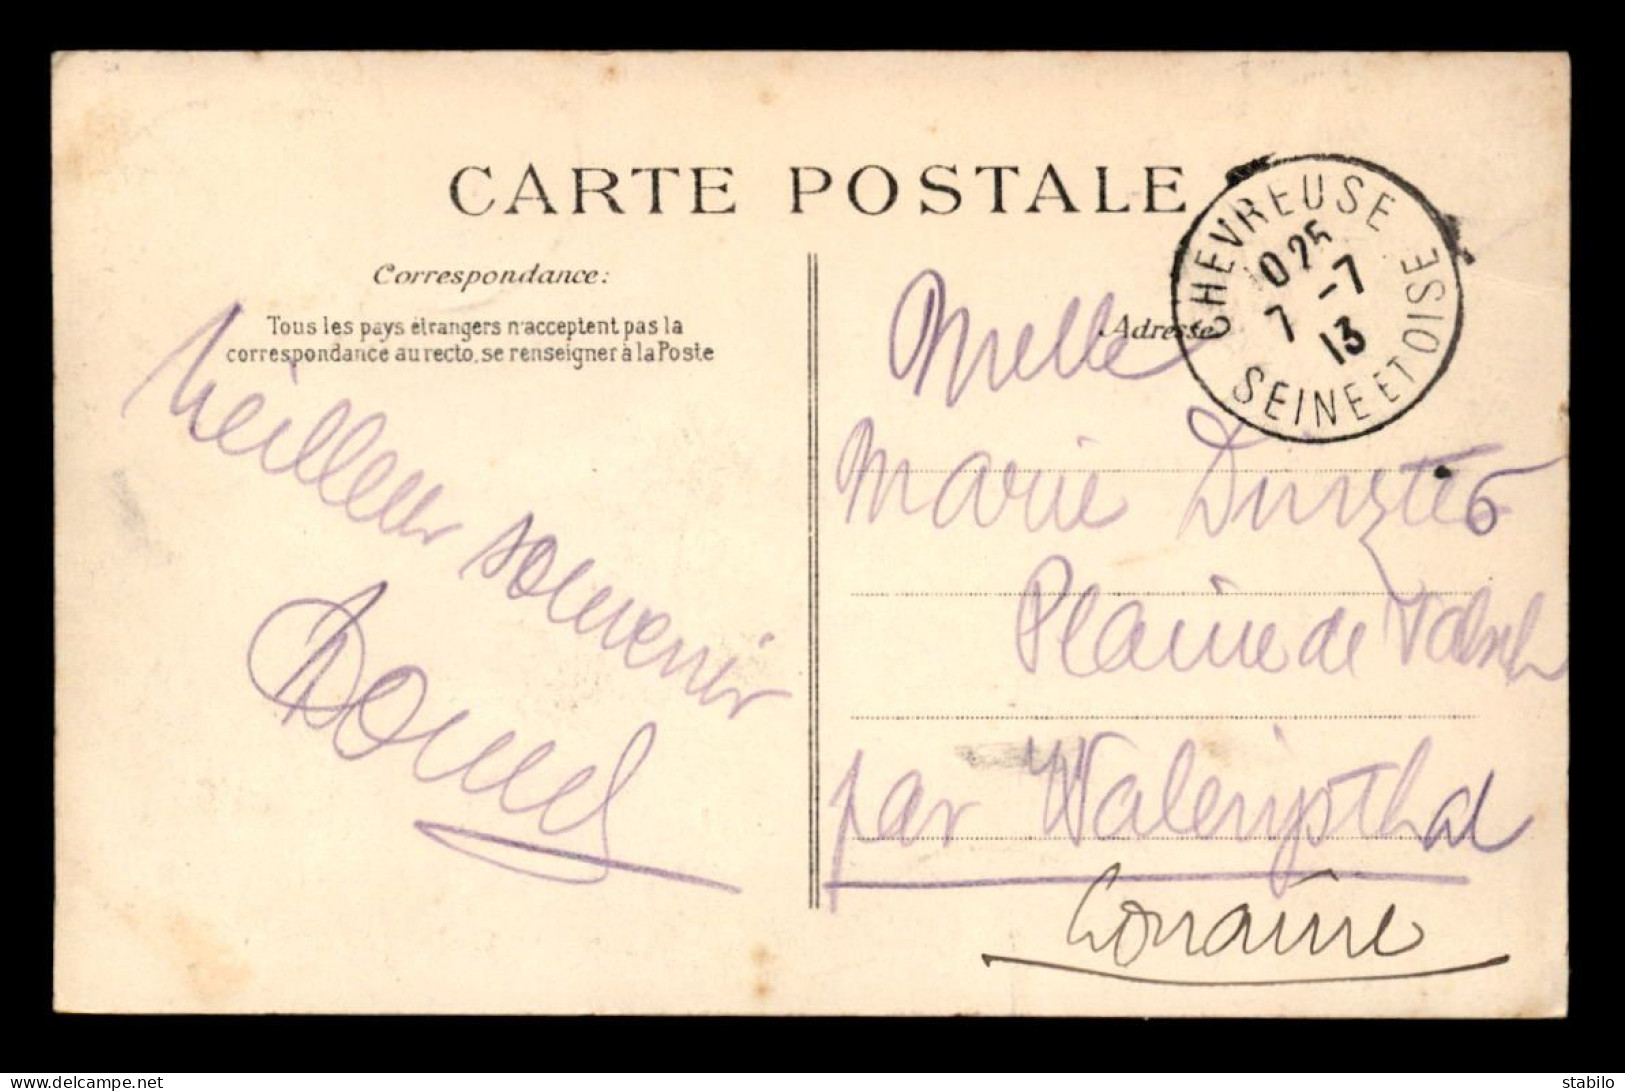 CARTE POSTALE
Correspondance:
Tous les pays étrangers n'acceptent pas la
correspondance au recto, se renseigner à la Poste
Meilleur souvenir
Adresse
CHEVREUSE
7 -7
13
SEINE ET OISE
Melle
Marie
Plaine de Valsch
par
Lorraine
www.delcampe.net
stabilo